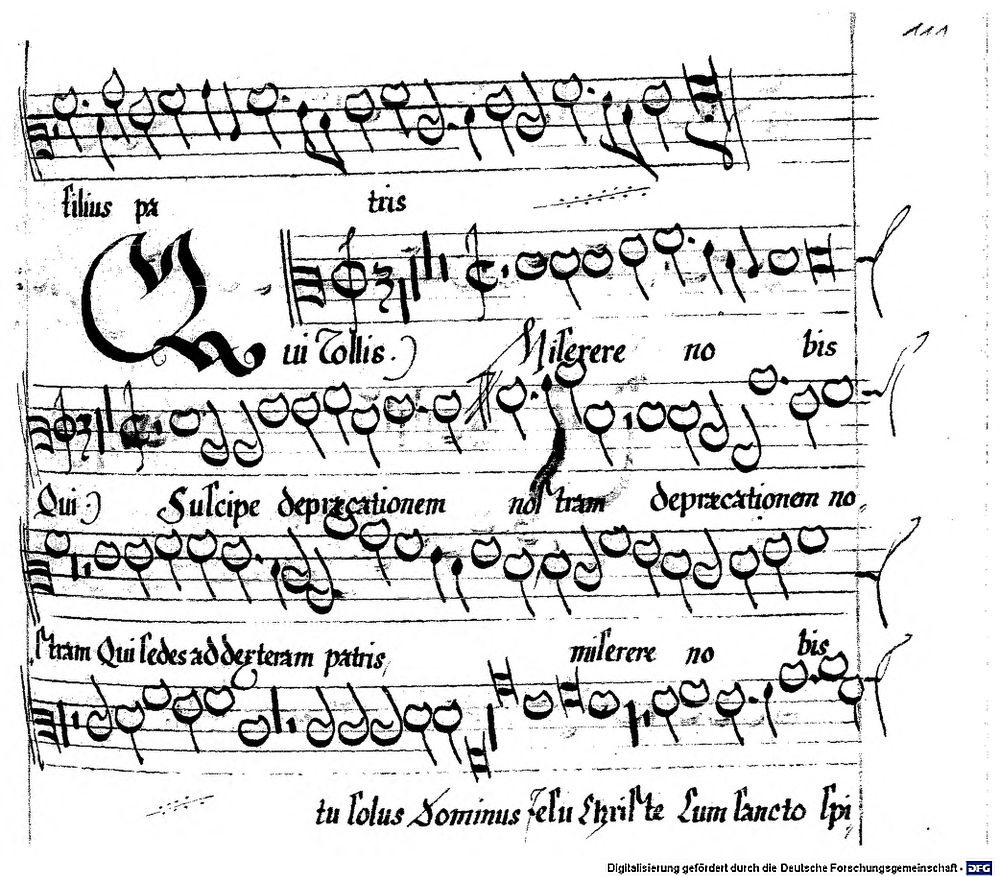 111
filius pa tris
Qui Tollis.) Miserere no bis
Qui.) Suscipe depræcationem nostram depræcationem no
stram Qui sedes ad dexteram patris miserere no bis
tu solus Dominus Jesu Christe Cum sancto spi
Digitalisierung gefördert durch die Deutsche Forschungsgemeinschaft - DFG